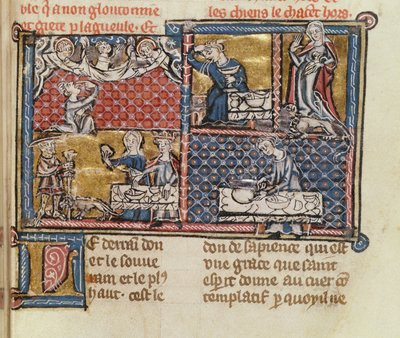 ble q a non glouton nie
et grete p la gueule. Et
les chiens le chacēt hors.
Le derrai don
et le souue
rain et le pl9
haut. cest le
don de sapience qui est
vne grace que saint
esp̄rit donne au cuer cō
templatif p̱ quoy il ne